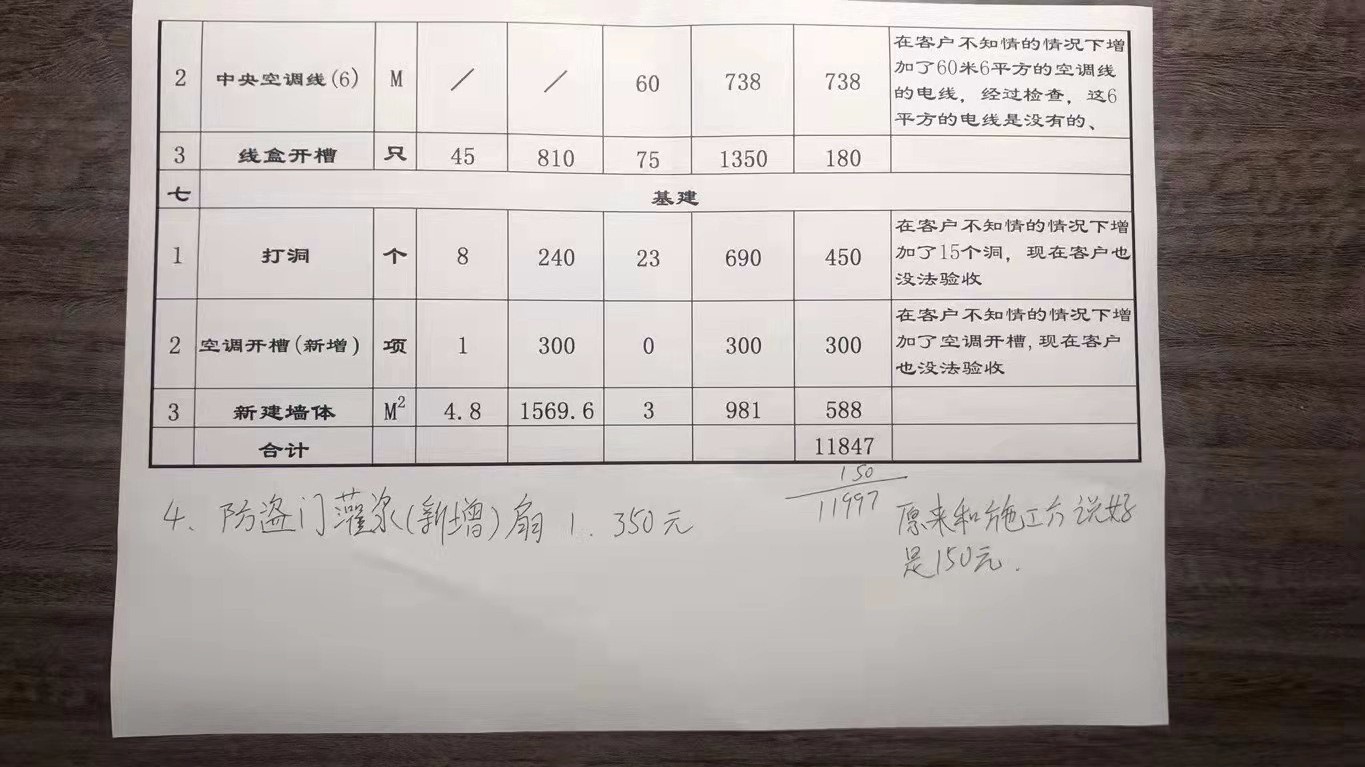 2 中央空调线(6) M / / 60 738 738 在客户不知情的情况下增
加了60米6平方的空调线
的电线，经过检查，这6
平方的电线是没有的、
3 线盒开槽 只 45 810 75 1350 180
七 基建
1 打洞 个 8 240 23 690 450 在客户不知情的情况下增
加了15个洞，现在客户也
没法验收
2 空调开槽(新增) 项 1 300 0 300 300 在客户不知情的情况下增
加了空调开槽,现在客户
也没法验收
3 新建墙体 M² 4.8 1569.6 3 981 588
合计 11847
150
11997
4、防盗门灌浆(新增)扇 1. 350元
原来和施工方说好
是150元.